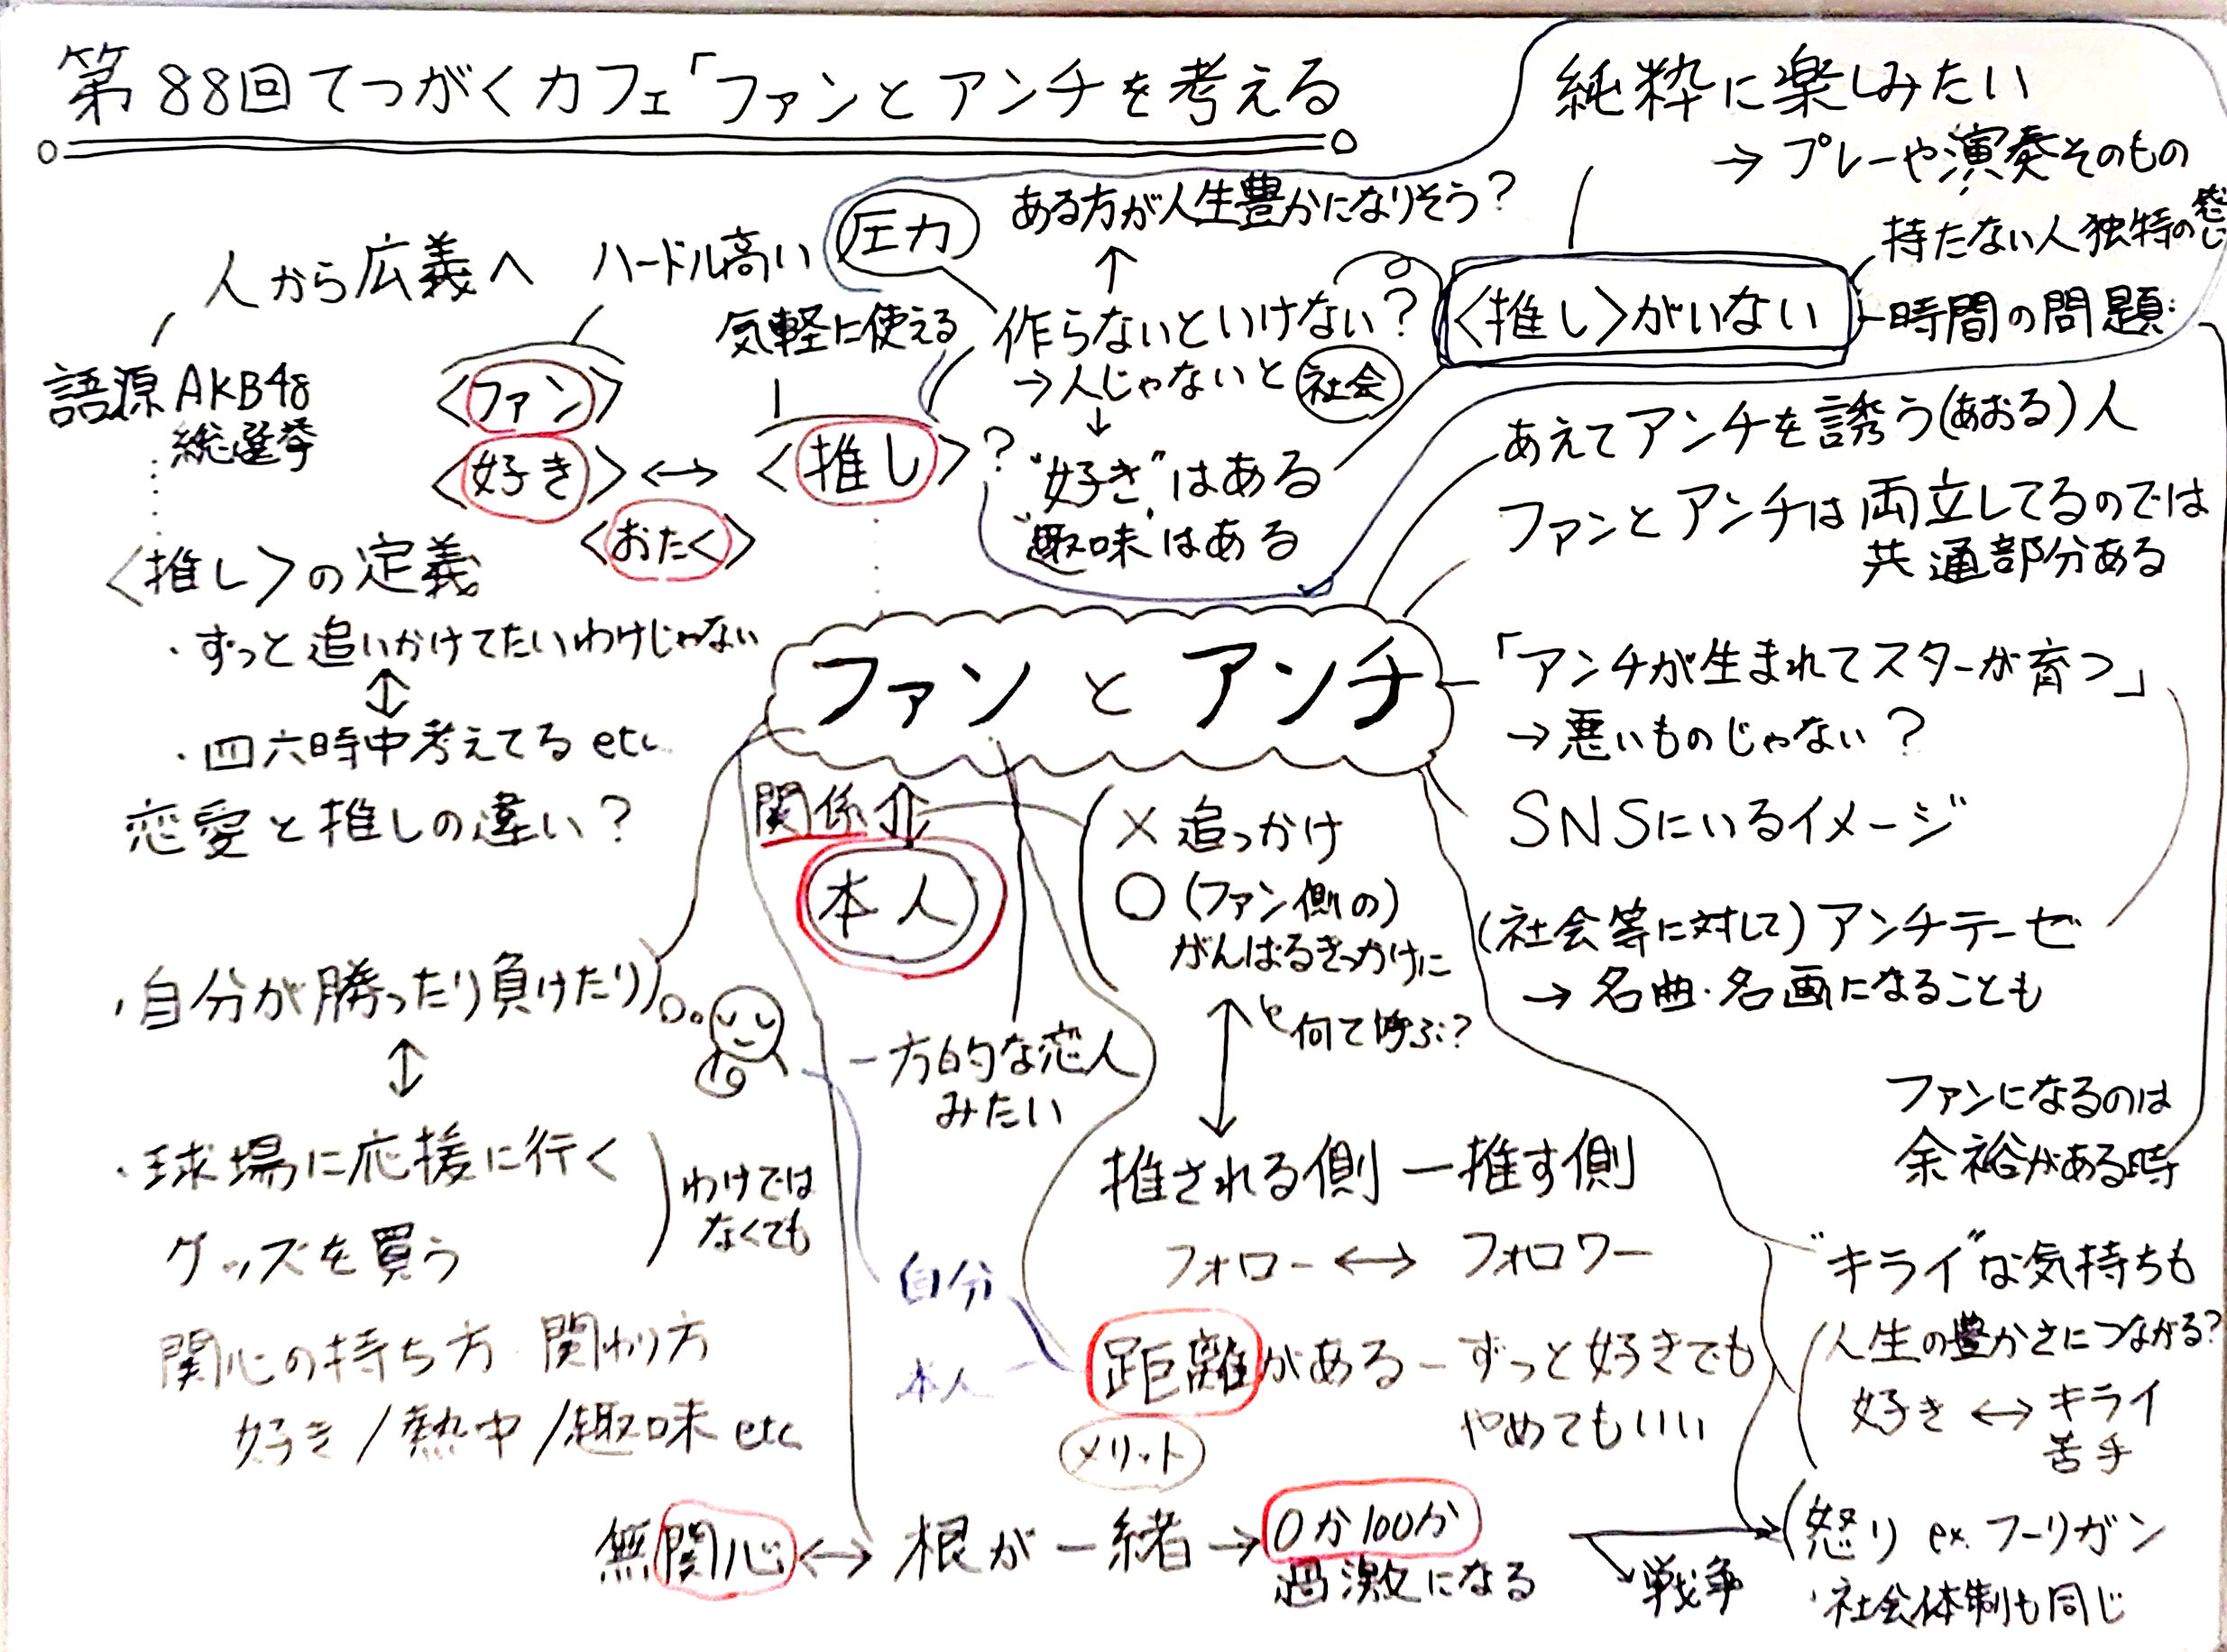 第88回てつがくカフェ「ファンとアンチを考える
純粋に楽しみたい
→ プレーや演奏そのもの
持たない人独特の感じ
〈推し〉がいない
時間の問題
ある方が人生豊かになりそう?
圧力
↑
作らないといけない?
→人じゃないと 社会
↓
"好き"はある
"趣味"はある
人から広義へ
ハードル高い
気軽に使える
語源 AKB48
総選挙
〈ファン〉
〈好き〉↔〈推し〉?
〈おたく〉
〈推し〉の定義
・ずっと追いかけてたいわけじゃない
↕
・四六時中考えてる etc
恋愛と推しの違い?
あえてアンチを誘う(あおる)人
ファンとアンチは両立してるのでは
共通部分ある
ファンとアンチ
「アンチが生まれてスターが育つ」
→悪いものじゃない?
SNSにいるイメージ
(社会等に対して)アンチテーゼ
→ 名曲・名画になることも
関係
本人
× 追っかけ
○ (ファン側の)
がんばるきっかけに
何て呼ぶ?
・自分が勝ったり負けたり
↕
・球場に応援に行く
グッズを買う
わけでは
なくても
一方的な恋人
みたい
推される側 ー 推す側
フォロー ↔ フォロワー
ファンになるのは
余裕がある時
関心の持ち方 関わり方
好き/熱中/趣味 etc
自分
本人
距離がある - ずっと好きでも
やめてもいい
メリット
"キライ"な気持ちも
人生の豊かさにつながる?
好き ↔ キライ
苦手
無関心 ↔ 根が一緒 → 0か100か
過激になる
戦争
怒り ex. フーリガン
・社会体制も同じ